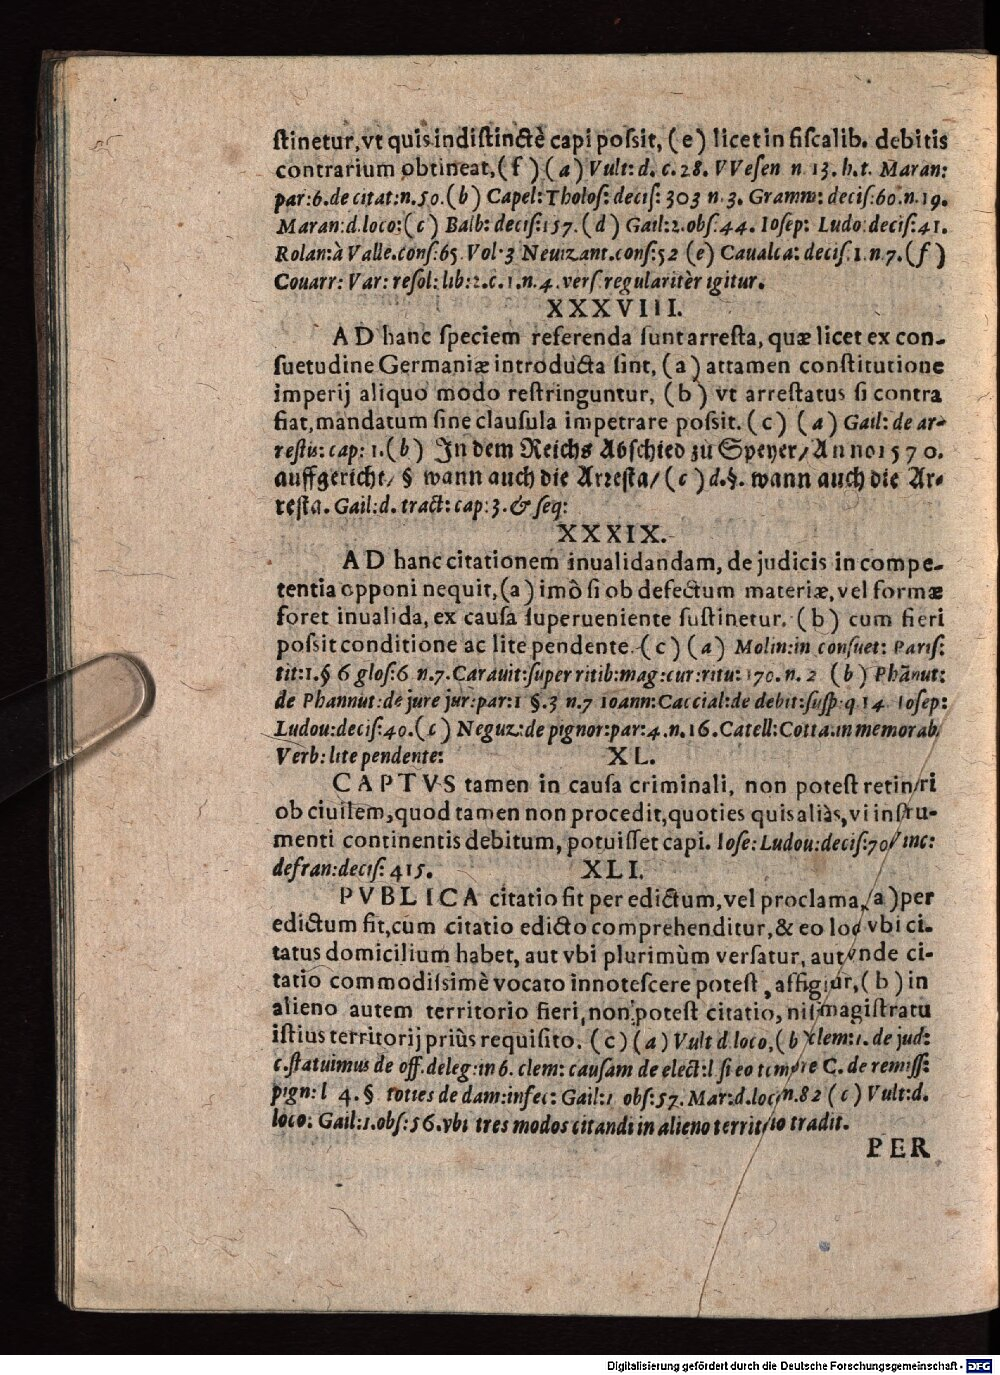 ſtinetur, vt quis indiſtinctè capi poſsit, (e) licet in fiſcalib. debitis
contrarium obtineat, (f) (a) Vult: d. c. 28. VVeſen n 13. h. t. Maran:
par: 6. de citat: n. 50. (b) Capel: Tholoſ: deciſ: 303 n 3. Gramm: deciſ: 60. n. 19.
Maran: d. loco: (c) Balb: deciſ: 157. (d) Gail: 2. obſ: 44. Ioſep: Ludo: deciſ: 41.
Rolan: à Valle. conſ: 65 Vol. 3 Neuizant. conſ: 52 (e) Caualca: deciſ. 1. n 7. (f)
Couarr: Var: reſol: lib: 2. c. 1. n. 4. verſ. regularitèr igitur.
XXXVIII.
AD hanc ſpeciem referenda ſunt arreſta, quæ licet ex con-
ſuetudine Germaniæ introducta ſint, (a) attamen conſtitutione
imperij aliquo modo reſtringuntur, (b) vt arreſtatus ſi contra
fiat, mandatum ſine clauſula impetrare poſsit. (c) (a) Gail: de ar-
reſtis: cap: 1. (b) In dem Reichs Abſchied zu Speyer/ Anno 1570.
auffgericht/ § wann auch die Arreſta/ (c) d. §. wann auch die Ar-
reſta. Gail: d. tract: cap: 3. & ſeq:
XXXIX.
AD hanc citationem inualidandam, de judicis incompe-
tentia opponi nequit, (a) imò ſi ob defectum materiæ, vel formæ
foret inualida, ex cauſa ſuperueniente ſuſtinetur. (b) cum fieri
poſsit conditione ac lite pendente. (c) (a) Molin: in conſuet: Pariſ:
tit: 1. § 6 gloſ: 6 n. 7. Carauit: ſuper ritib: mag: cur: ritu: 170. n. 2 (b) Phãnut:
de Phannut: de jure jur: par: 1 §. 3 n. 7 Ioann: Caccial: de debit: ſuſp: q 14 Ioſep:
Ludou: deciſ: 40. (c) Neguz: de pignor: par: 4. n. 16. Catell: Cotta. in memorab.
Verb: lite pendente:
XL.
CAPTVS tamen in cauſa criminali, non poteſt retineri
ob ciuilem, quod tamen non procedit, quoties quis aliàs, vi inſtru-
menti continentis debitum, potuiſſet capi. Ioſe: Ludou: deciſ: 70 inc:
de fran: deciſ: 415.
XLI.
PVBLICA citatio fit per edictum, vel proclama, (a) per
edictum fit, cum citatio edicto comprehenditur, & eo loco vbi ci-
tatus domicilium habet, aut vbi plurimùm verſatur, aut vnde ci-
tatio commodiſsimè vocato innoteſcere poteſt, affigitur, (b) in
alieno autem territorio fieri, non poteſt citatio, niſi magiſtratu
iſtius territorij priùs requiſito. (c) (a) Vult d. loco, (b) clem: 1. de jud:
c. ſtatuimus de off. deleg: in 6. clem: cauſam de elect: l ſi eo tempore C. de remiſſ:
pign: l 4. § toties de dam: infec: Gail: 1 obſ: 57. Mar: d. loc. n. 82 (c) Vult: d.
loco. Gail: 1. obſ: 56. vbi tres modos citandi in alieno territorio tradit.
PER
Digitalisierung gefördert durch die Deutsche Forschungsgemeinschaft - DFG